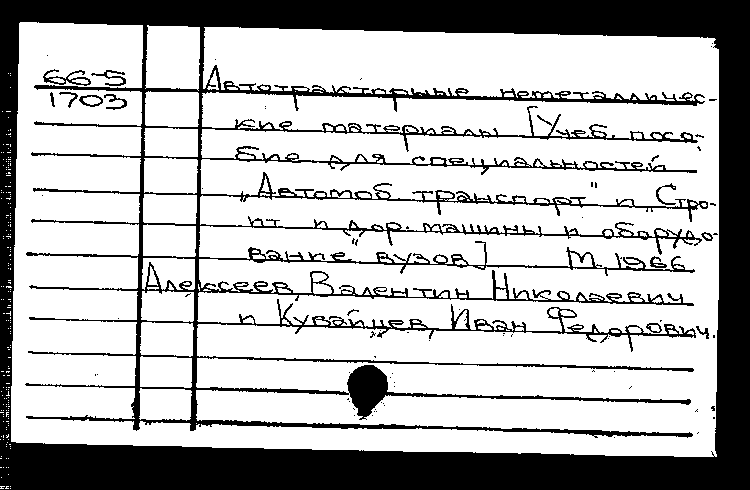 66-5
1703
Автотракторные неметалличес-
кие материалы [Учеб. посо-
бие для специальностей
„Автомоб транспорт" и „Стро-
ит и дор. машины и оборудо-
вание" вузов] М., 1966
Алексеев, Валентин Николаевич
и Кувайцев, Иван Федорович.